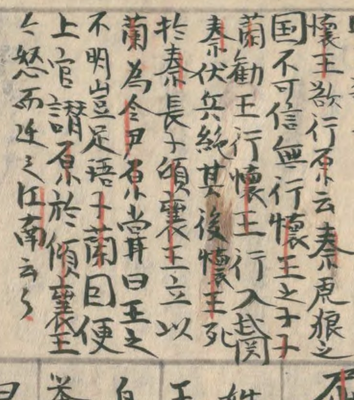 懐王欲行原云秦虎狼之
国不可信無行懐王之子子
蘭勧王行懐王行入武関
秦伏兵絶其後懐王死
於秦長子頃襄王立以
蘭為令尹原嘗曰王之
不明豈足語子蘭因便
上官讃原於傾襄王
々怒而迁之江南云々